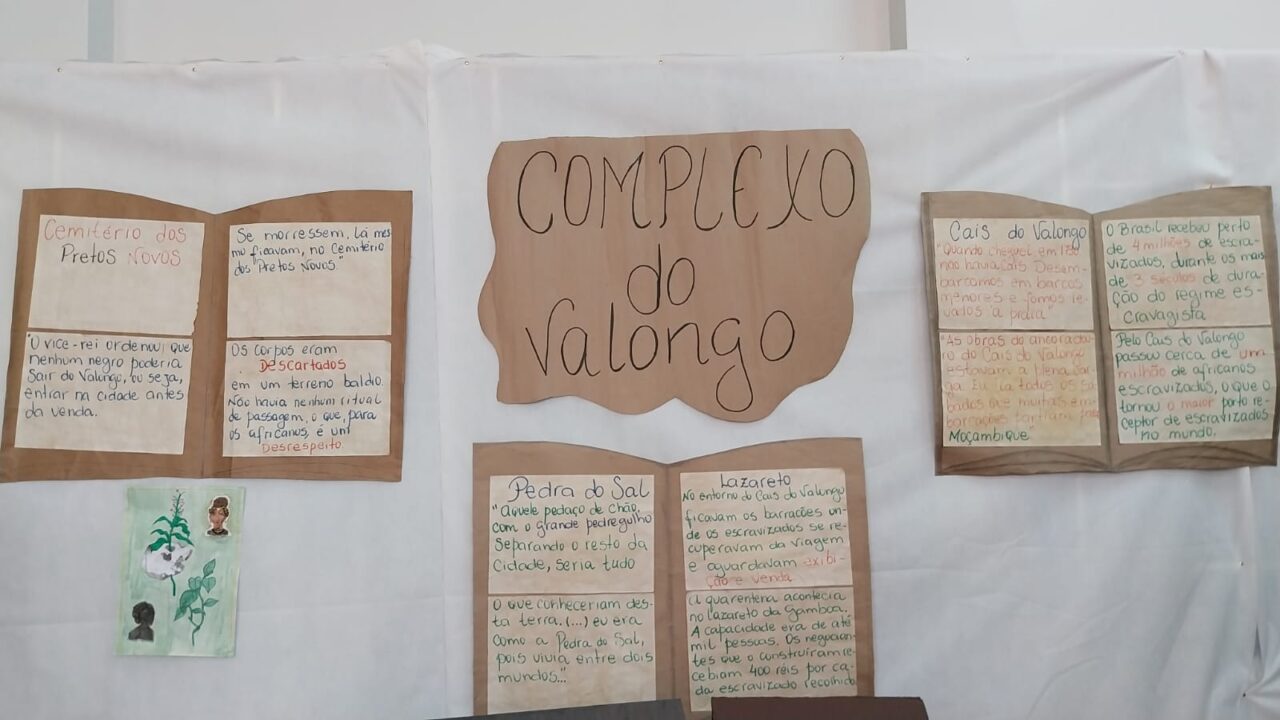 COMPLEXO
do
Valongo
Cemitério dos
Pretos Novos
"O vice-rei ordenou que
nenhum negro poderia
Sair do Valongo, ou seja,
entrar na cidade antes
da venda.
Se morressem, lá mes
mo ficavam, no Cemitério
dos "Pretos Novos"
Os corpos eram
Descartados
em um terreno baldio.
Não havia nenhum ritual
de passagem, o que, para
os africanos, é um
Desrespeito.
Pedra do Sal
"Aquele pedaço de chão,
com o grande pedregulho
Separando o resto da
Cidade, seria tudo
O que conheceriam des-
ta terra. (...) eu era
como a Pedra do Sal,
pois vivia entre dois
mundos..."
Lazareto
No entorno do Cais do Valongo
ficavam os barracões on-
de os escravizados se re-
cuperavam da viagem
e aguardavam exibi-
ção e venda
A quarentena acontecia
no Lazareto da Gamboa.
A capacidade era de até
mil pessoas. Os negocian-
tes que o construiram re-
cebiam 400 réis por ca-
da escravizado recolhido
Cais do Valongo
"Quando cheguei em
não havia cais. Desem-
barcamos em barcos
menores e fomos le-
vados à praia"
"As obras do ancoradou-
ro do Cais do Valongo
estavam a plena car
ga. Eu ia todos os sá-
bados ver muitas em-
barcações
Moçambique"
O Brasil recebeu perto
de 4 milhões de escra-
vizados, durante os mais
de 3 séculos de dura-
ção do regime es-
cravagista
Pelo Cais do Valongo
passou cerca de um
milhão de africanos
escravizados, o que o
tornou o maior porto re-
ceptor de escravizados
no mundo.